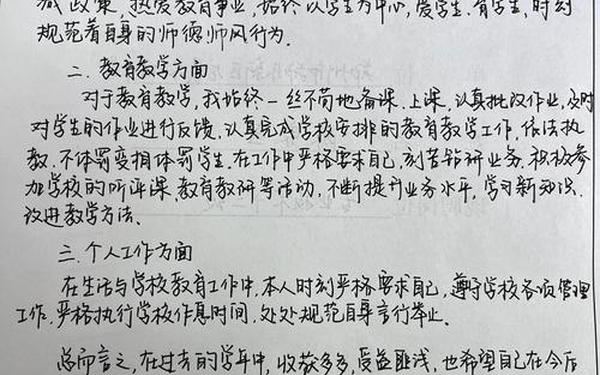 政策.热爱教育事业,始终以学生为中心,爱学生.育学生,时刻
规范着自身的师德师风行为.
二.教育教学方面
对于教育教学,我始终一丝不苟地备课.上课,认真批改作业,及时
对学生的作业进行反馈.认真完成学校安排的教育教学工作,依法执
教.不体罚变相体罚学生.在工作中严格要求自己.刻苦钻研业务.积极参
加学校的听评课.教育教研等活动.不断提升业务水平,学习新知识.
改进教学方法.
三.个人工作方面
在生活与学校教育工作中,本人时刻严格要求自己,遵守学校各项管理
工作.严格执行学校作息时间.处处规范自身言行举止.
总而言之,在过去的学年中,收获多多,受益匪浅,也希望自己在今后